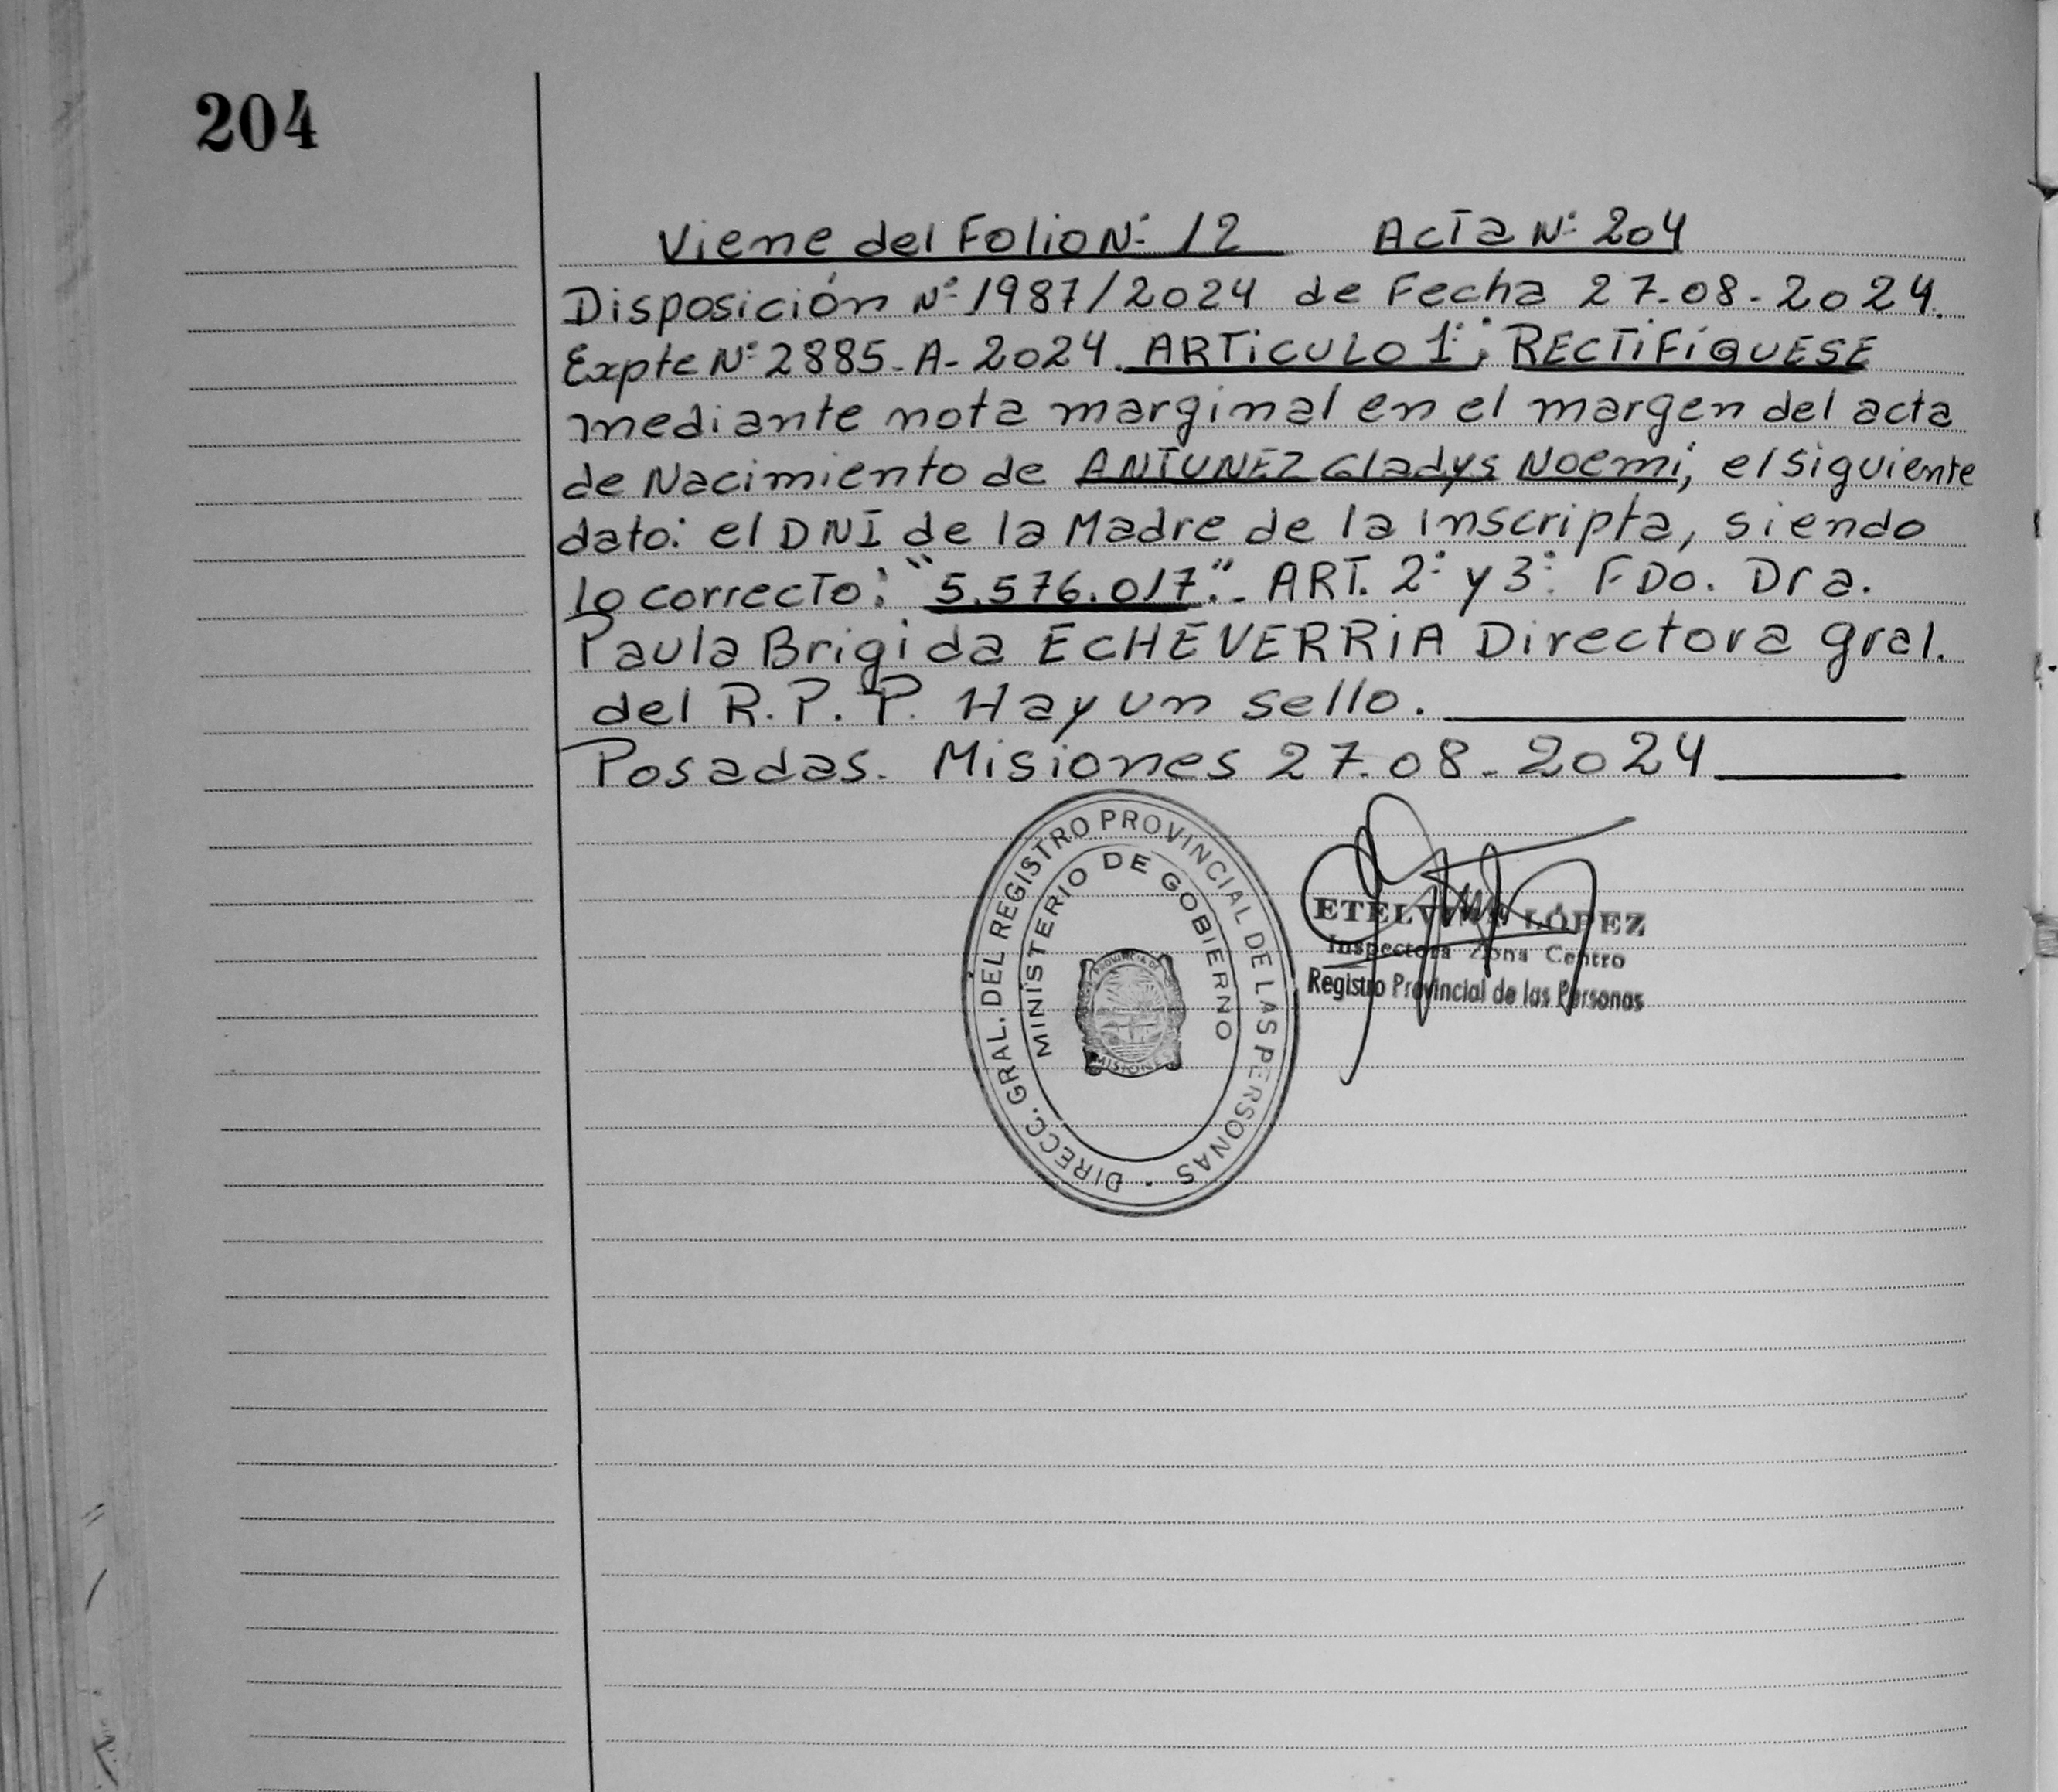 204
Viene del Folio N° 12 Acta N° 204
Disposición N° 1987/2024 de Fecha 27-08-2024.
Expte N° 2885-A-2024. ARTICULO 1°: RECTIFÍQUESE
mediante nota marginal en el margen del acta
de Nacimiento de ANTUNEZ Gladys Noemi, el siguiente
dato: el DNI de la Madre de la inscripta, siendo
lo correcto: "5.576.017".- ART. 2° y 3° FDo. Dra.
Paula Brigida ECHEVERRIA Directora gral.
del R.P.P. Hay un sello.
Posadas. Misiones 27-08-2024
DIRECC. GRAL. DEL REGISTRO PROVINCIAL DE LAS PERSONAS
MINISTERIO DE GOBIERNO
PROVINCIA DE
MISIONES
ETELVINA LÓPEZ
Inspectora Zona Centro
Registro Provincial de las Personas